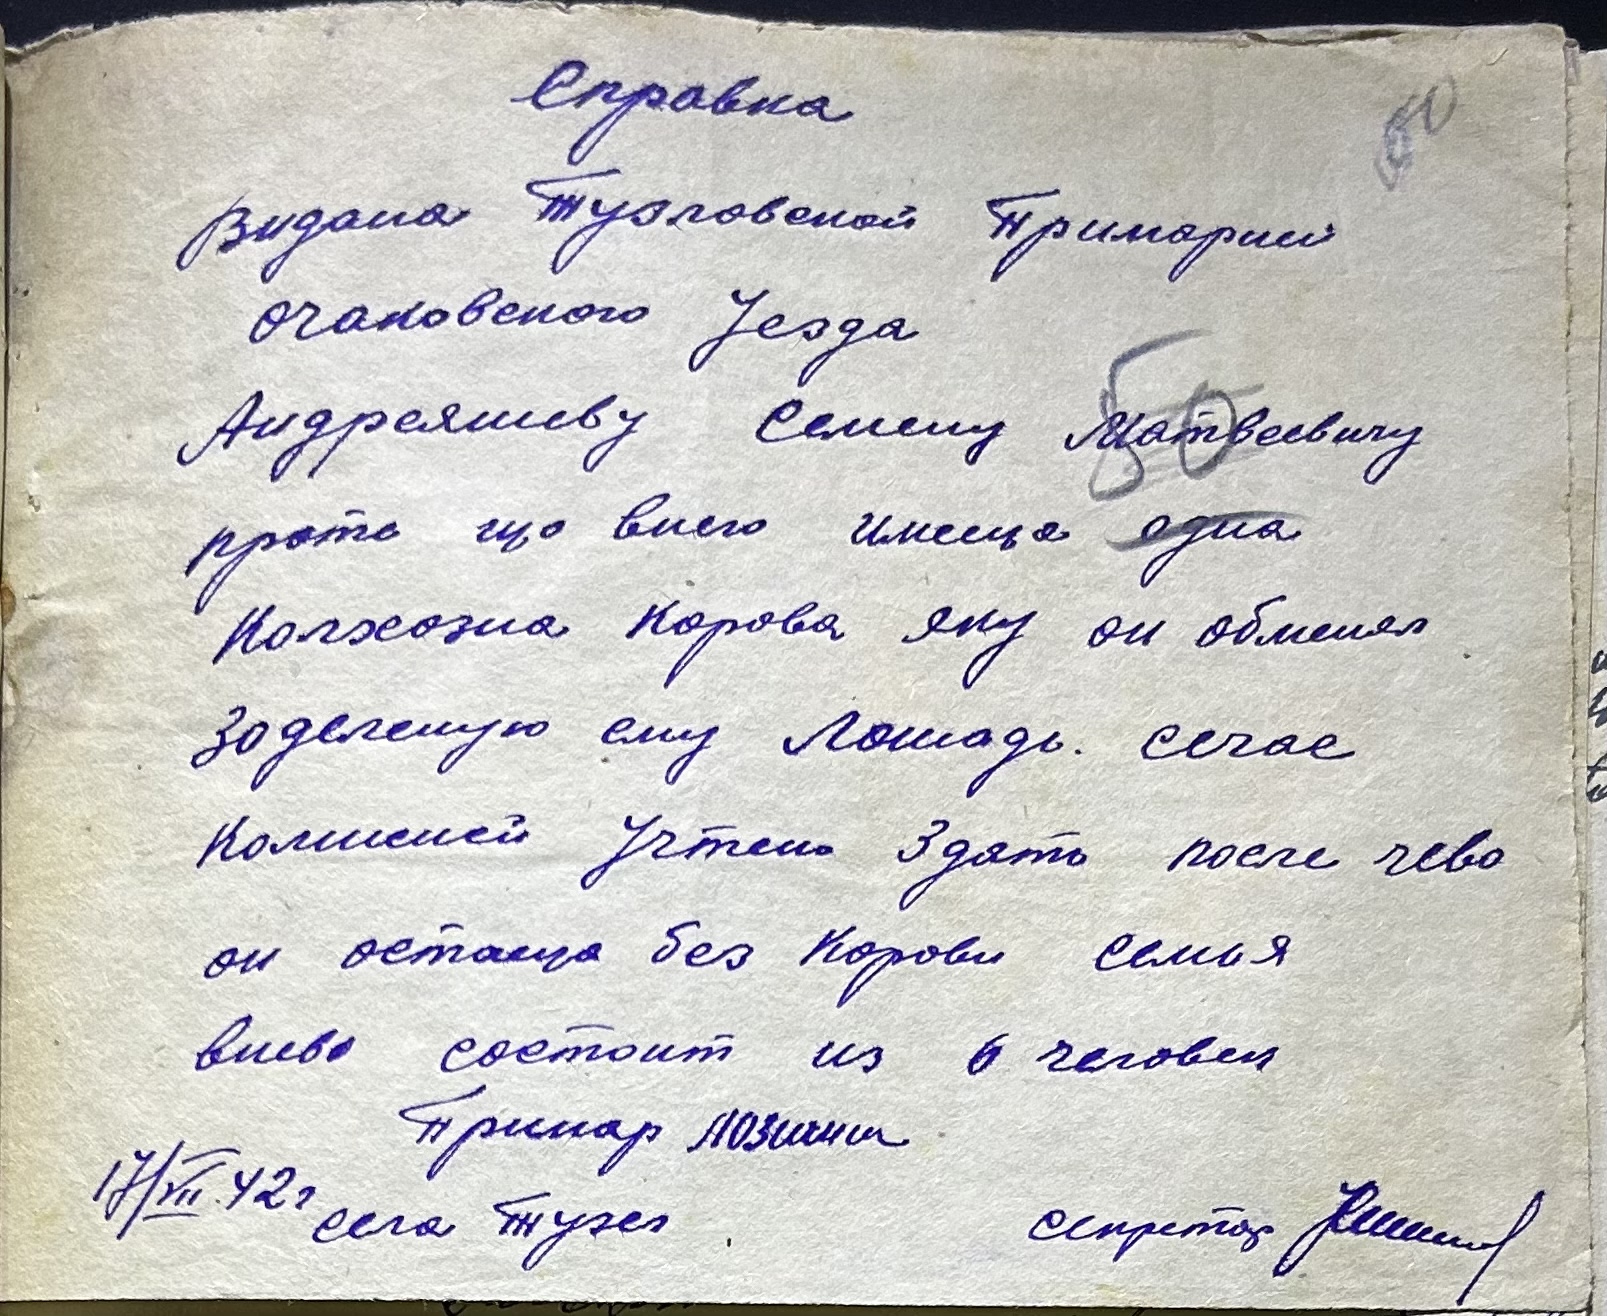 Справка
60
Видана Тузловской Примарией
Очаковского Уезда
Андреяшеву Семену Матвеевичу
50
прото що внего имеица одна
Колхозна Корова яку он обменял
Зоделеную ему Лошадь. сечас
Комисией Учтено Здать после чево
он остаица без Корови семья
внево состоит из 6 человек
Примар Лозинии
17/VII.42г
села Тузел секретар